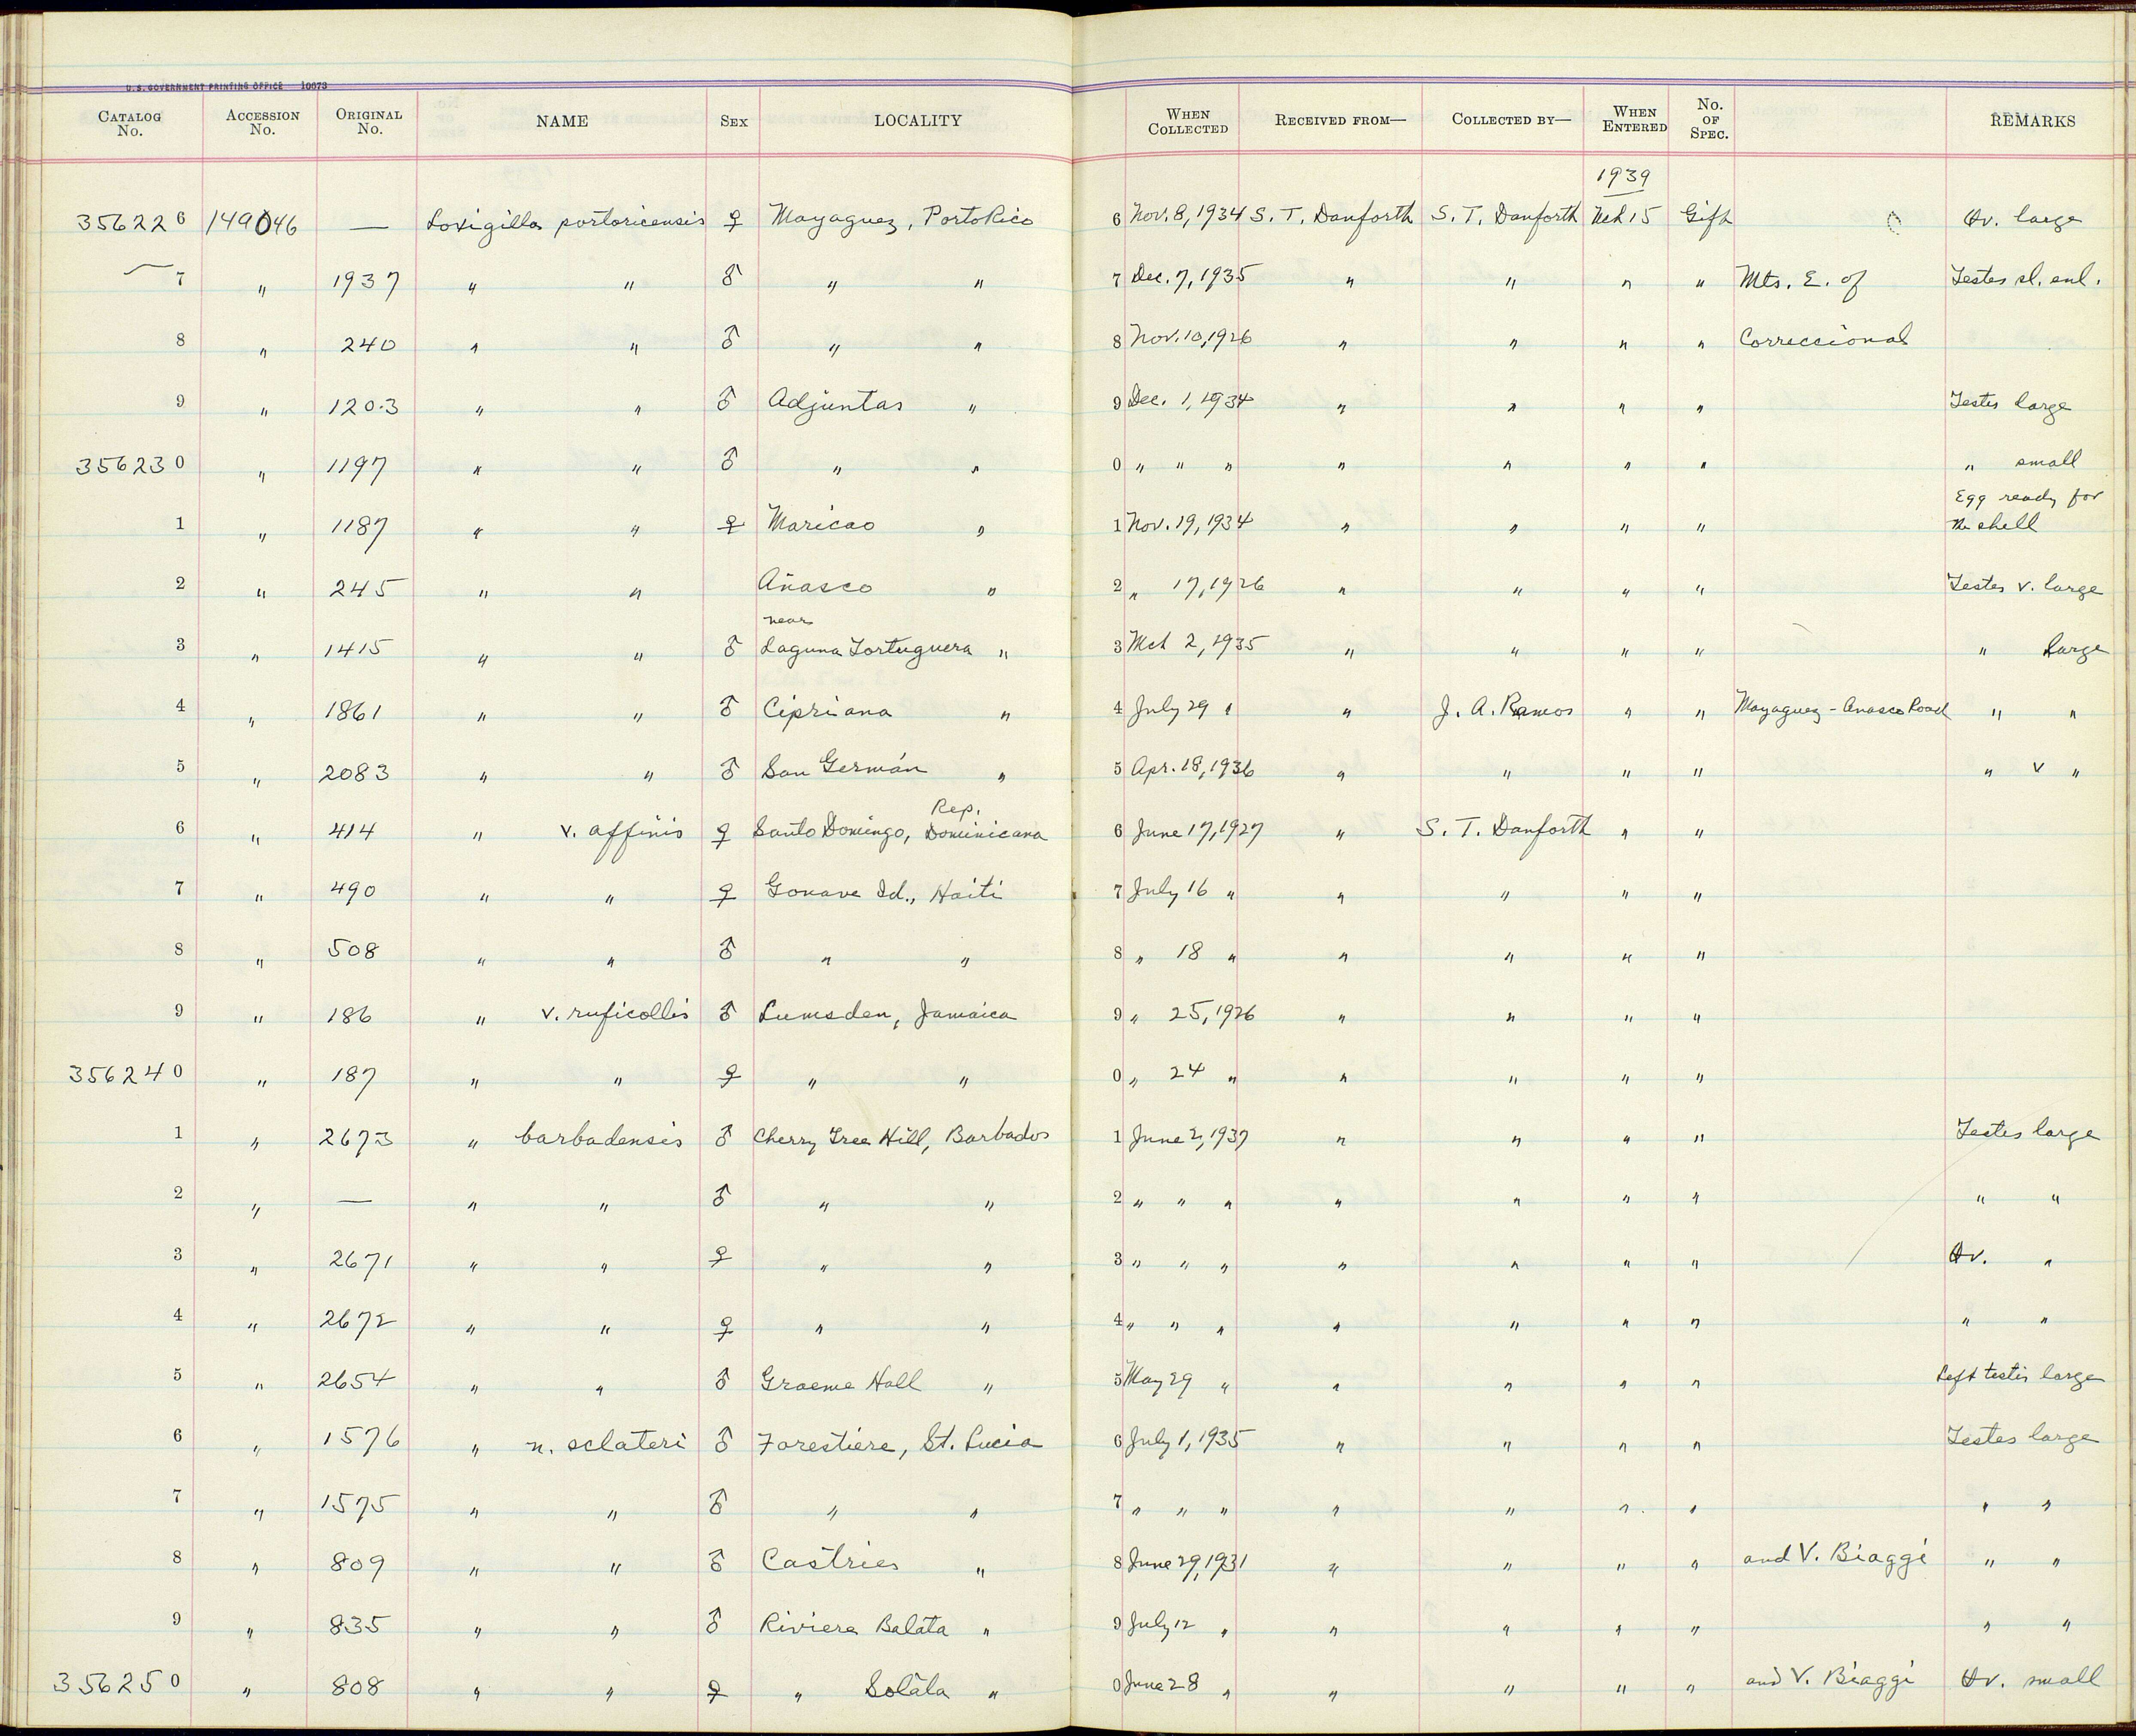 U.S. GOVERNMENT PRINTING OFFICE 10673
CATALOG No. ACCESSION No. ORIGINAL No. NAME SEX LOCALITY WHEN COLLECTED RECEIVED FROM— COLLECTED BY— WHEN ENTERED No. OF SPEC. REMARKS
1939
356226 149046 — Loxigilla portoricensis ♀ Mayaguez, Porto Rico 6 Nov. 8, 1934 S. T. Danforth S. T. Danforth Mch 15 Gift Ov. large
7 " 1937 " " ♂ " " 7 Dec. 7, 1935 " " " " Mts. E. of Testes sl. enl.
8 " 240 " " ♂ " " 8 Nov. 10, 1926 " " " " Correccional
9 " 1203 " " ♂ Adjuntas " 9 Dec. 1, 1934 " " " " Testes large
356230 " 1197 " " ♂ " " 0 " " " " " " " " small
Egg ready for
1 " 1187 " " ♀ Maricao " 1 Nov. 19, 1934 " " " " the shell
2 " 245 " " Añasco " 2 " 17, 1926 " " " " Testes v. large
near
3 " 1415 " " ♂ Laguna Tortuguera " 3 Mch 2, 1935 " " " " " large
4 " 1861 " " ♂ Cipriana " 4 July 29 " " J. A. Ramos " " Mayaguez - Anasco Road " "
5 " 2083 " " ♂ San Germán " 5 Apr. 18, 1936 " " " " " v "
Rep.
6 " 414 " v. affinis ♀ Santo Domingo, Dominicana 6 June 17, 1927 " S. T. Danforth " "
7 " 490 " " ♀ Gonave Id., Haiti 7 July 16 " " " " "
8 " 508 " " ♂ " " 8 " 18 " " " " "
9 " 186 " v. ruficollis ♂ Lumsden, Jamaica 9 " 25, 1926 " " " "
356240 " 187 " " ♀ " " 0 " 24 " " " " "
1 " 2673 " barbadensis ♂ Cherry Tree Hill, Barbados 1 June 2, 1937 " " " " Testes large
2 " — " " ♂ " " 2 " " " " " " " " "
3 " 2671 " " ♀ " " 3 " " " " " " " Ov. "
4 " 2672 " " ♀ " " 4 " " " " " " " " "
5 " 2654 " " ♂ Graeme Hall " 5 May 29 " " " " " Left testis large
6 " 1576 " n. sclateri ♂ Forestiere, St. Lucia 6 July 1, 1935 " " " " Testes large
7 " 1575 " " ♂ " " 7 " " " " " " " " "
8 " 809 " " ♂ Castries " 8 June 29, 1931 " " " " and V. Biaggi " "
9 " 835 " " ♂ Riviere Balata " 9 July 12 " " " " " " "
356250 " 808 " " ♀ " Solata " 0 June 28 " " " " " and V. Biaggi Ov. small